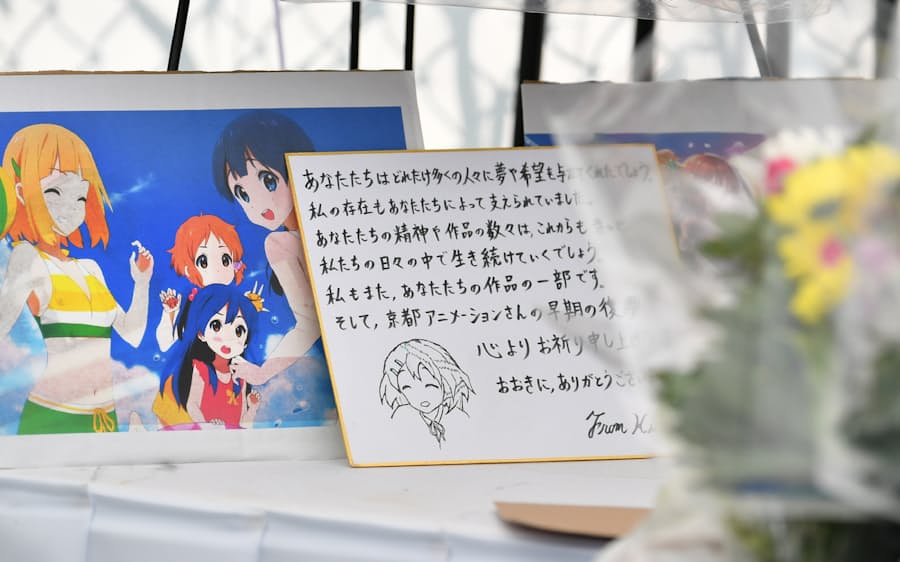 あなたたちはどれだけ多くの人々に夢や希望を与えてくれたでしょう。
私の存在もあなたたちによって支えられていました。
あなたたちの精神や作品の数々は、これからも
私たちの日々の中で生き続けていくでしょう。
私もまた、あなたたちの作品の一部です。
そして、京都アニメーションさんの早期の復
心よりお祈り申し上
おおきに、ありがとうござ
From K